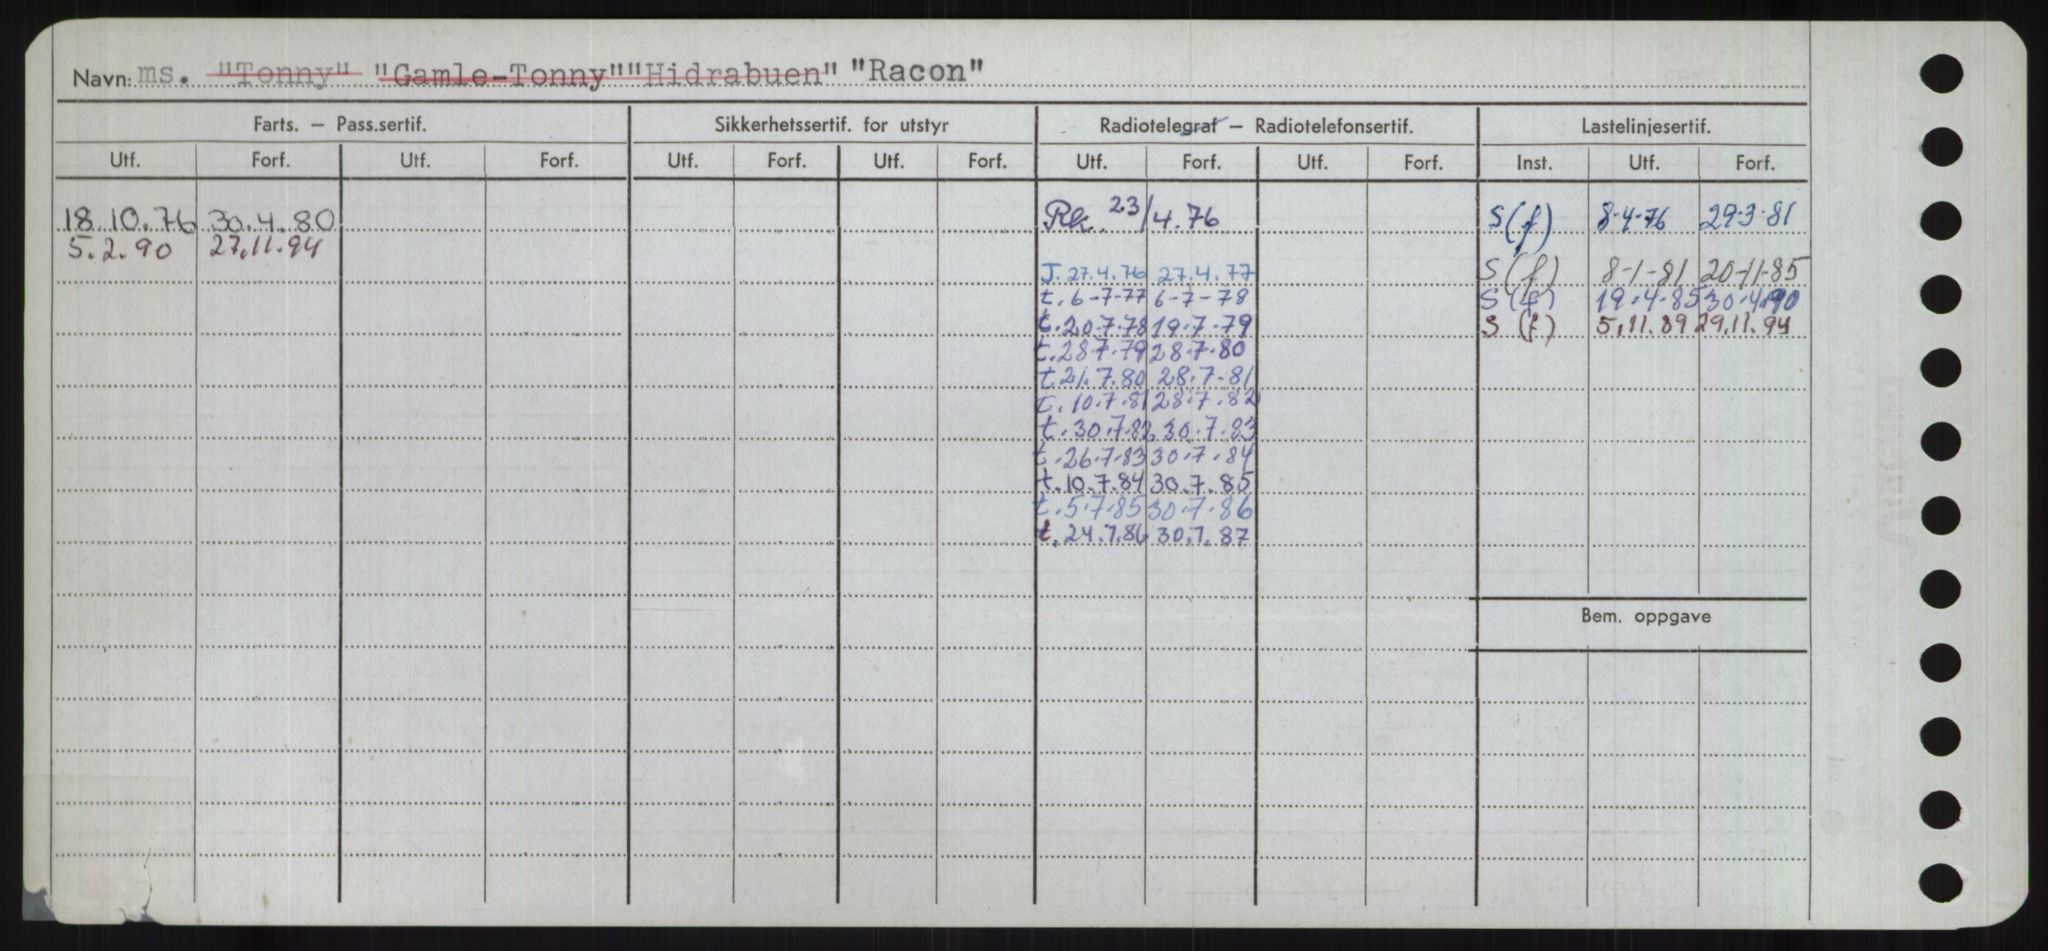 Navn: ms. "Tonny" "Gamle-Tonny" "Hidrabuen" "Racon"
Farts. – Pass.sertif. Sikkerhetssertif. for utstyr Radiotelegraf – Radiotelefonsertif. Lastelinjesertif.
Utf. Forf. Utf. Forf. Utf. Forf. Utf. Forf. Utf. Forf. Utf. Forf. Inst. Utf. Forf.
18.10.76 30.4.80 Rk. 23/4.76 S(f) 8-4-76 29-3-81
5.2.90 27.11.94
J. 27.4.76 27.4.77 S(f) 8-1-81 20-11-85
t. 6-7-77 6-7-78 S(f) 19.4.85 30.4.90
t. 20.7.78 19.7.79 S(f) 5.11.89 29.11.94
t. 28.7.79 28.7.80
t. 21.7.80 28.7.81
t. 10.7.81 28.7.82
t. 30.7.82 30.7.83
t. 26.7.83 30.7.84
t. 10.7.84 30.7.85
t. 5.7.85 30.7.86
t. 24.7.86 30.7.87
Bem. oppgave